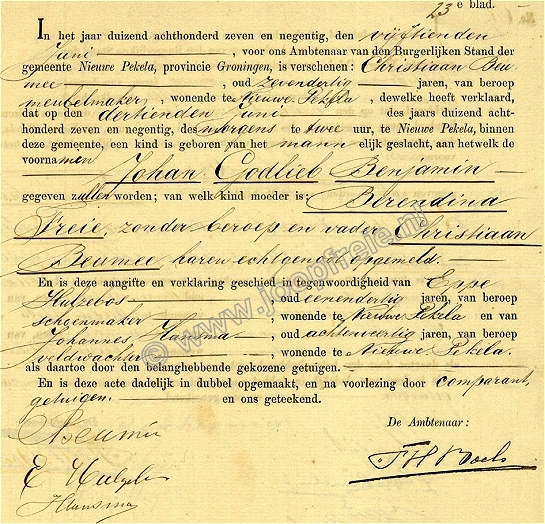 23 e blad.
In het jaar duizend achthonderd zeven en negentig, den vijftienden
Juni, voor ons Ambtenaar van den Burgerlijken Stand der
gemeente Nieuwe Pekela, provincie Groningen, is verschenen: Christiaan Beu
mee, oud zevendertig jaren, van beroep
meubelmaker, wonende te Nieuwe Pekela, dewelke heeft verklaard,
dat op den dertienden Juni des jaars duizend acht-
honderd zeven en negentig, des morgens te twee uur, te Nieuwe Pekela, binnen
deze gemeente, een kind is geboren van het mannelijk geslacht, aan hetwelk de
voornamen
Johan Godlieb Benjamin
gegeven zullen worden; van welk kind moeder is: Berendina
Freie, zonder beroep en vader Christiaan
Beumee, haren echtgenoot opgemeld.
En is deze aangifte en verklaring geschied in tegenwoordigheid van Eppe
Hulzebos, oud eenendertig jaren, van beroep
schoenmaker, wonende te Nieuwe Pekela en van
Johannes Hansma, oud achtenveertig jaren, van beroep
veldwachter, wonende te Nieuwe Pekela.
als daartoe door den belanghebbende gekozene getuigen.
En is deze acte dadelijk in dubbel opgemaakt, en na voorlezing door comparant,
getuigen en ons geteekend.
De Ambtenaar:
Beumée
E Hulzebos
JHansma
© www.joopfreie.nl